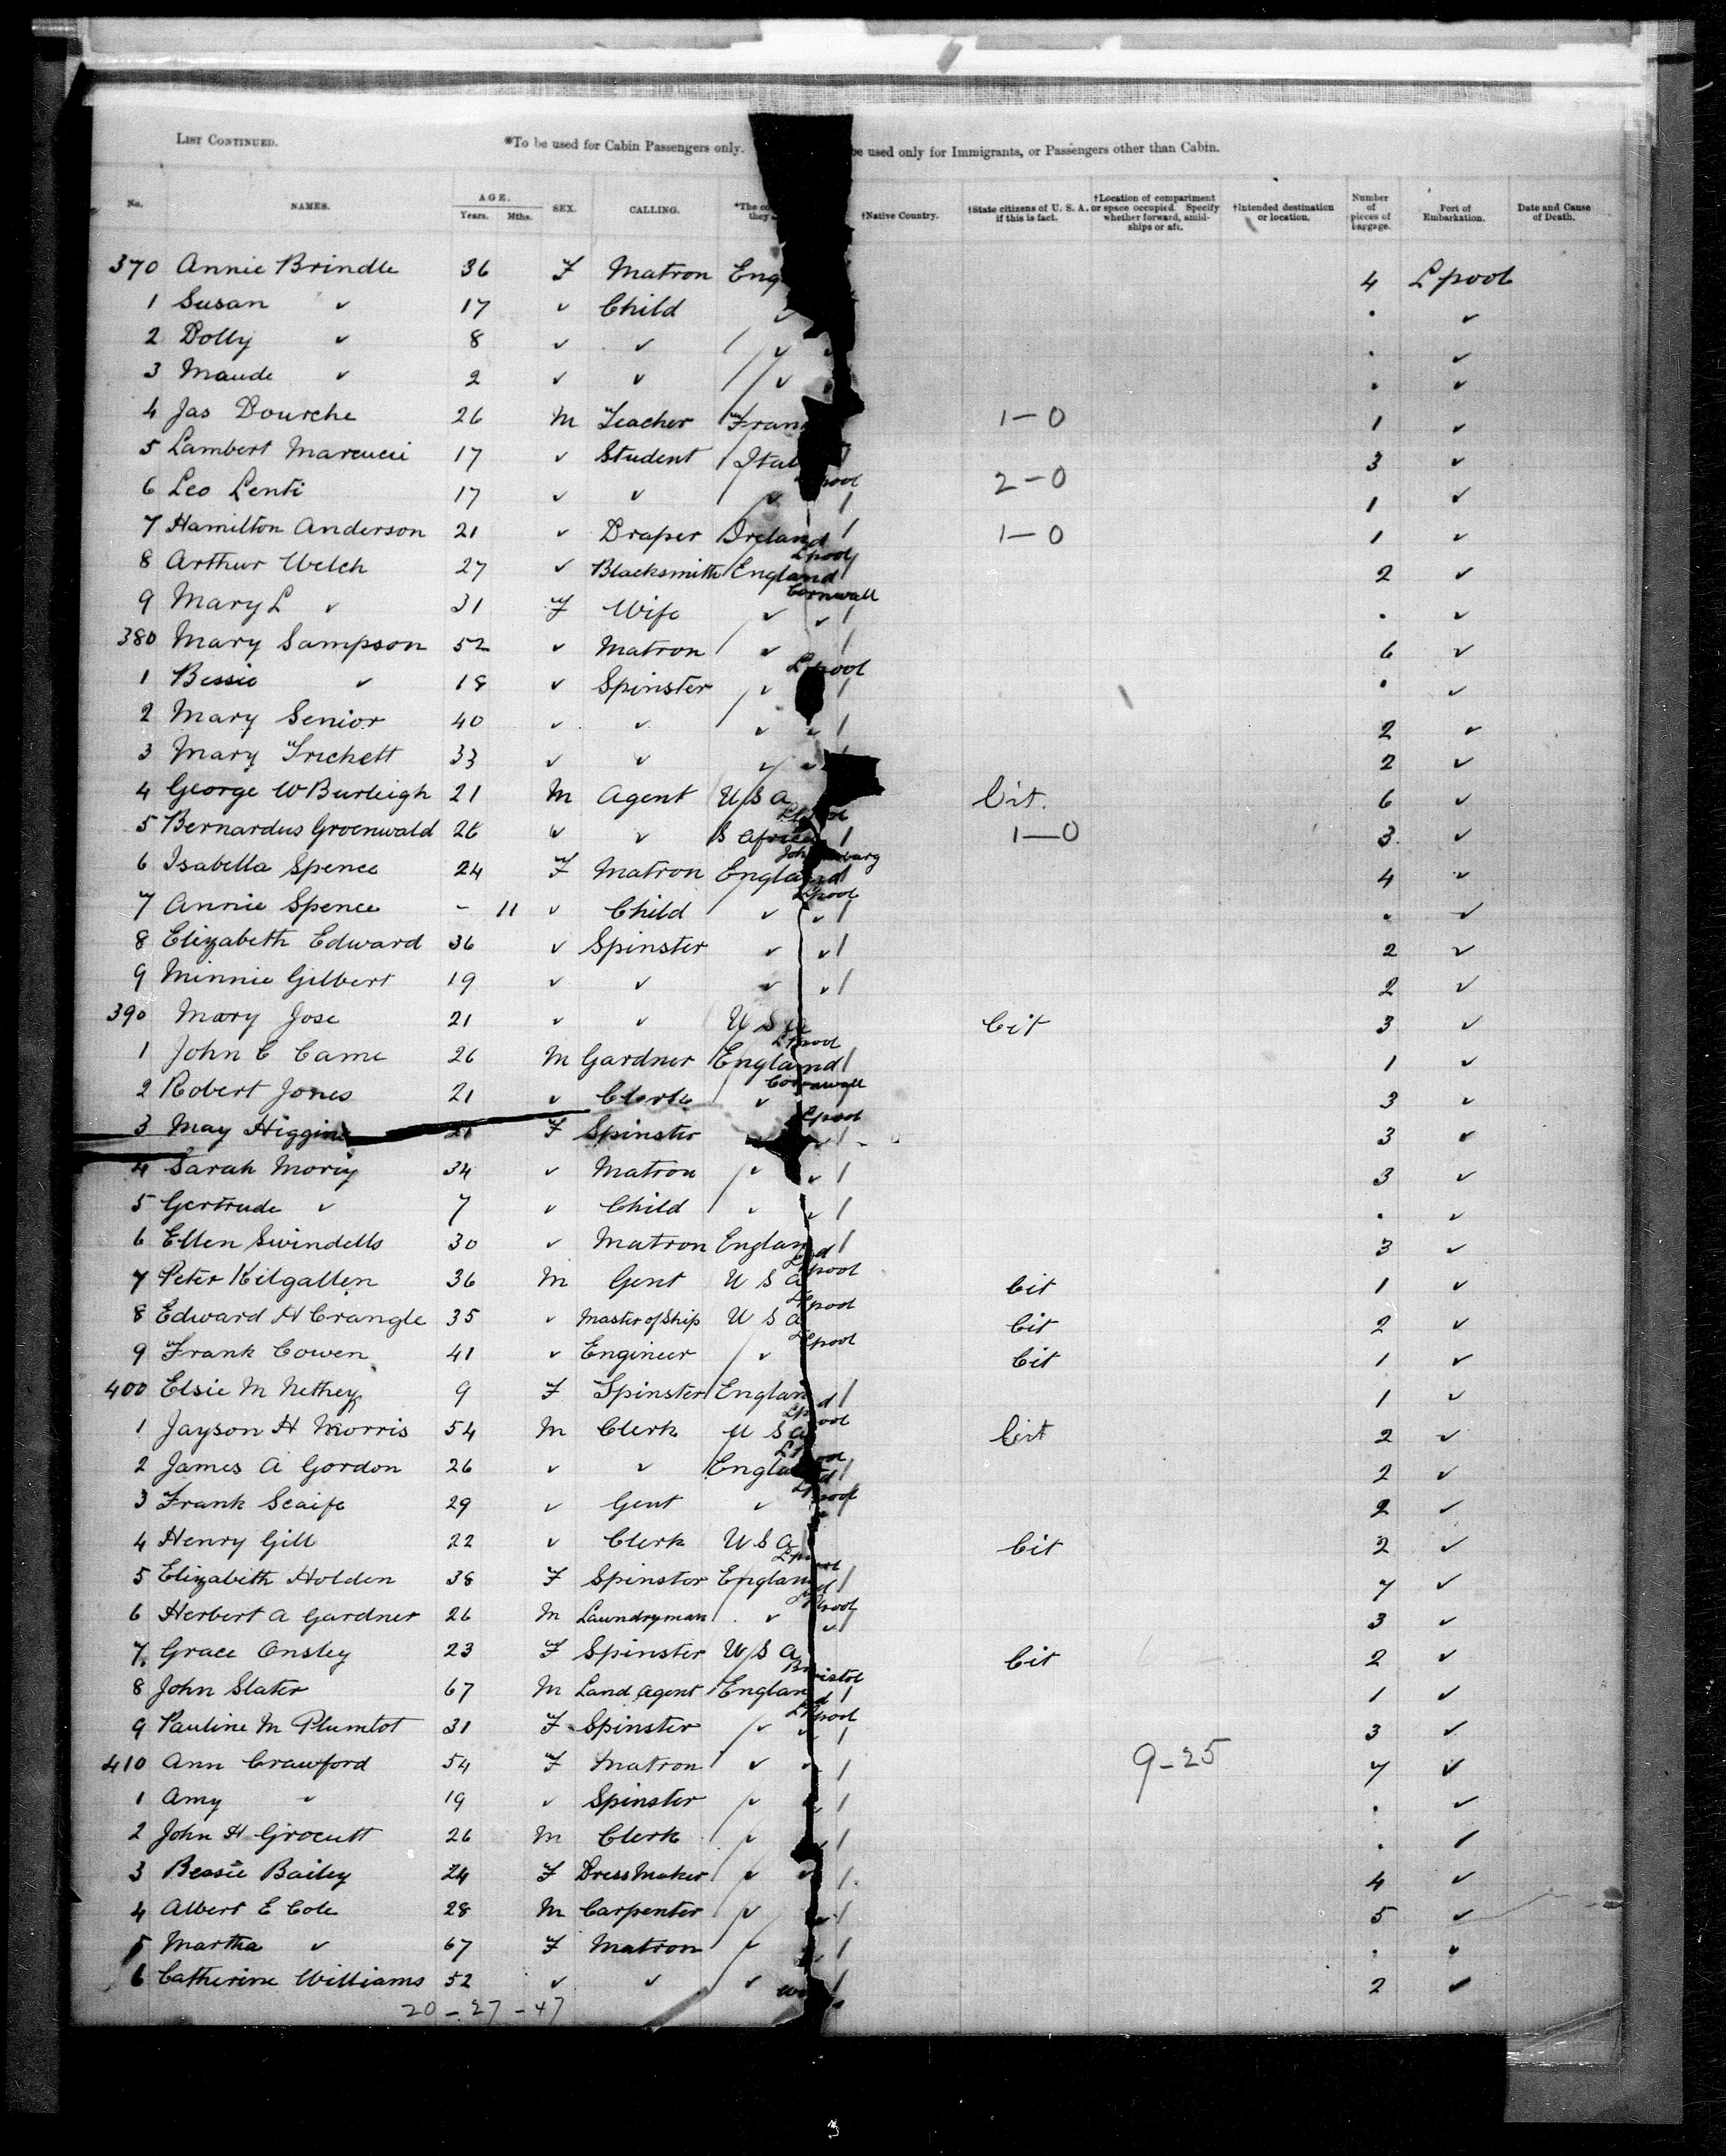 LIST CONTINUED. *To be used for Cabin Passengers only. be used only for Immigrants, or Passengers other than Cabin.
No. NAMES. AGE. Years. Mths. SEX. CALLING. *The they †Native Country. †State citizens of U. S. A. if this is fact. †Location of compartment or space occupied. Specify whether forward, amidships or aft. †Intended destination or location. Number of pieces of baggage. Port of Embarkation. Date and Cause of Death.
370 Annie Brindle 36 F Matron Eng 4 L'pool
1 Susan ✓ 17 ✓ Child ✓ . ✓
2 Dolly ✓ 8 ✓ ✓ ✓ . ✓
3 Maude ✓ 2 ✓ ✓ ✓ . ✓
4 Jas Dourche 26 M Teacher Fran 1-0 1 ✓
5 Lambert Marcucci 17 ✓ Student Ital 3 ✓
6 Leo Lenti 17 ✓ ✓ ✓ 2-0 1 ✓
7 Hamilton Anderson 21 ✓ Draper Ireland 1-0 1 ✓
L'pool
8 Arthur Welch 27 ✓ Blacksmith England 2 ✓
Cornwall
9 Mary L ✓ 31 F Wife ✓ ✓ . ✓
380 Mary Sampson 52 ✓ Matron ✓ 6 ✓
L'pool
1 Bessie ✓ 18 ✓ Spinster ✓ . ✓
2 Mary Senior 40 ✓ ✓ ✓ ✓ 2 ✓
3 Mary Trickett 33 ✓ ✓ ✓ ✓ 2 ✓
4 George W Burleigh 21 M Agent U S A Cit. 6 ✓
5 Bernardus Groenwald 26 ✓ ✓ S Africa 1-0 3 ✓
6 Isabella Spence 24 F Matron England 4 ✓
L'pool
7 Annie Spence - 11 ✓ Child ✓ ✓ . ✓
8 Elizabeth Edward 36 ✓ Spinster ✓ ✓ 2 ✓
9 Minnie Gilbert 19 ✓ ✓ ✓ ✓ 2 ✓
390 Mary Jose 21 ✓ ✓ U S A Cit 3 ✓
L'pool
1 John C Came 26 M Gardner England 1 ✓
Cornwall
2 Robert Jones 21 ✓ Clerk ✓ 3 ✓
L'pool
3 May Higgins 21 F Spinster ✓ 3 ✓
4 Sarah 34 ✓ Matron ✓ ✓ 3 ✓
5 Gertrude ✓ 7 ✓ Child ✓ ✓ . ✓
6 Ellen Swindells 30 ✓ Matron England 3 ✓
L'pool
7 Peter Kilgallen 36 M Gent U S A Cit 1 ✓
L'pool
8 Edward H Crangle 35 ✓ Master of Ship U S A Cit 2 ✓
L'pool
9 Frank Cowen 41 ✓ Engineer ✓ Cit 1 ✓
400 Elsie M Nethey 9 F Spinster England 1 ✓
L'pool
1 Jayson H Morris 54 M Clerk U S A Cit 2 ✓
L'pool
2 James A Gordon 26 ✓ ✓ England 2 ✓
L'pool
3 Frank Scaife 29 ✓ Gent ✓ 2 ✓
4 Henry Gill 22 ✓ Clerk U S A Cit 2 ✓
L'pool
5 Elizabeth Holden 38 F Spinster England 7 ✓
L'pool
6 Herbert A Gardner 26 M Laundryman ✓ ✓ 3 ✓
7 Grace Onsley 23 F Spinster U S A Cit 2 ✓
Bristol
8 John Slater 67 M Land Agent England 1 ✓
L'pool
9 Pauline M Plumtot 31 F Spinster ✓ ✓ 3 ✓
410 Ann Crawford 54 F Matron ✓ ✓ 9-25 7 ✓
1 Amy ✓ 19 ✓ Spinster ✓ ✓ . ✓
2 John H Grocutt 26 M Clerk ✓ ✓ . ✓
3 Bessie Bailey 24 F Dress Maker ✓ ✓ 4 ✓
4 Albert E Cole 28 M Carpenter ✓ ✓ 5 ✓
5 Martha ✓ 67 F Matron ✓ ✓ . ✓
6 Catherine Williams 52 ✓ ✓ ✓ 2 ✓
20-27-47
3